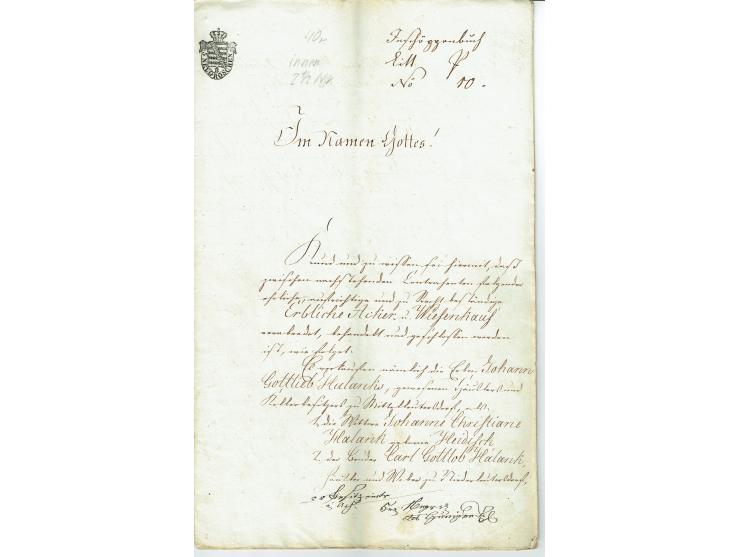 Im Schöppenbuch
Litt P
No 10.
innen
Im Namen Gottes!
Kund und zu wissen sei hiermit, daß
zwischen nachstehenden Contrahenten folgender
ehrliche, aufrichtige und zu Recht beständige
Erbliche Acker u. Wiesenkauf
verabredet, behandelt und geschlossen worden
ist, wie folget.
Es verkaufen nämlich die Erben Johann
Gottlieb Halanks, gewesenen Häuslers und
besitzers zu Mittelleutersdorf, als:
1. die Wittwe Johanne Christiane
Halank geborne Heidisch
2. der Bruder Carl Gottlob Halank,
Häusler und Weber zu Niederleutersdorf,